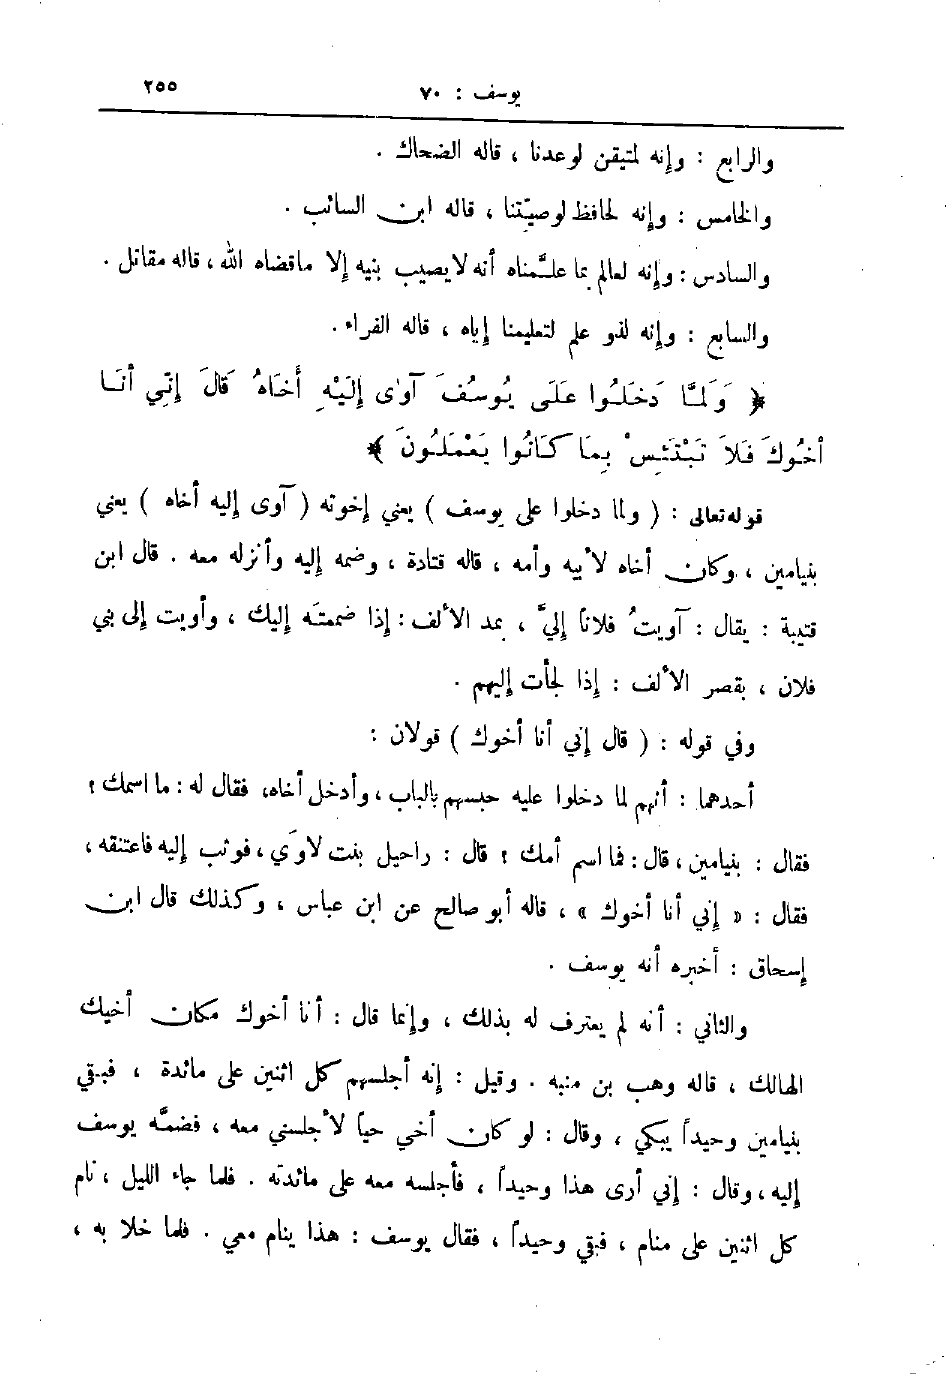 يوسف : ٧٠ ٢٥٥
والرابع : وإنه لمتيقن لوعدنا ، قاله الضحاك .
والخامس : وإنه لحافظ لوصيّتنا ، قاله ابن السائب .
والسادس : وإنه لعالم بما علَّمناه أنه لا يصيب بنيه إلا ما قضاه الله ، قاله مقاتل .
والسابع : وإنه لذو علم لتعليمنا إياه ، قاله الفراء .
﴿ وَلَمَّا دَخَلُوا عَلَى يُوسُفَ آوَى إِلَيْهِ أَخَاهُ قَالَ إِنِّي أَنَا
أَخُوكَ فَلاَ تَبْتَئِسْ بِمَا كَانُوا يَعْمَلُونَ ﴾
قوله تعالى : ( ولما دخلوا على يوسف ) يعني إخوته ( آوى إليه أخاه ) يعني
بنيامين ، وكان أخاه لأبيه وأمه ، قاله قتادة ، وضمه إليه وأنزله معه . قال ابن
قتيبة : يقال : آويتُ فلاناً إليَّ ، بمد الألف : إذا ضممتَه إليك ، وأويت إلى بني
فلان ، بقصر الألف : إذا لجأت إليهم .
وفي قوله : ( قال إني أنا أخوك ) قولان :
أحدهما : أنهم لما دخلوا عليه حبسهم بالباب ، وأدخل أخاه، فقال له : ما اسمك ؟
فقال : بنيامين ، قال : فما اسم أمك ؟ قال : راحيل بنت لاوَي ، فوثب إليه فاعتنقه ،
فقال : « إني أنا أخوك » ، قاله أبو صالح عن ابن عباس ، وكذلك قال ابن
إسحاق : أخبره أنه يوسف .
والثاني : أنه لم يعترف له بذلك ، وإنما قال : أنا أخوك مكان أخيك
الهالك ، قاله وهب بن منبه . وقيل : إنه أجلسهم كل اثنين على مائدة ، فبقي
بنيامين وحيداً يبكي ، وقال : لو كان أخي حياً لأجلسني معه ، فضمَّه يوسف
إليه ، وقال : إني أرى هذا وحيداً ، فأجلسه معه على مائدته . فلما جاء الليل ، نام
كل اثنين على منام ، فبقي وحيداً ، فقال يوسف : هذا ينام معي . فلما خلا به ،